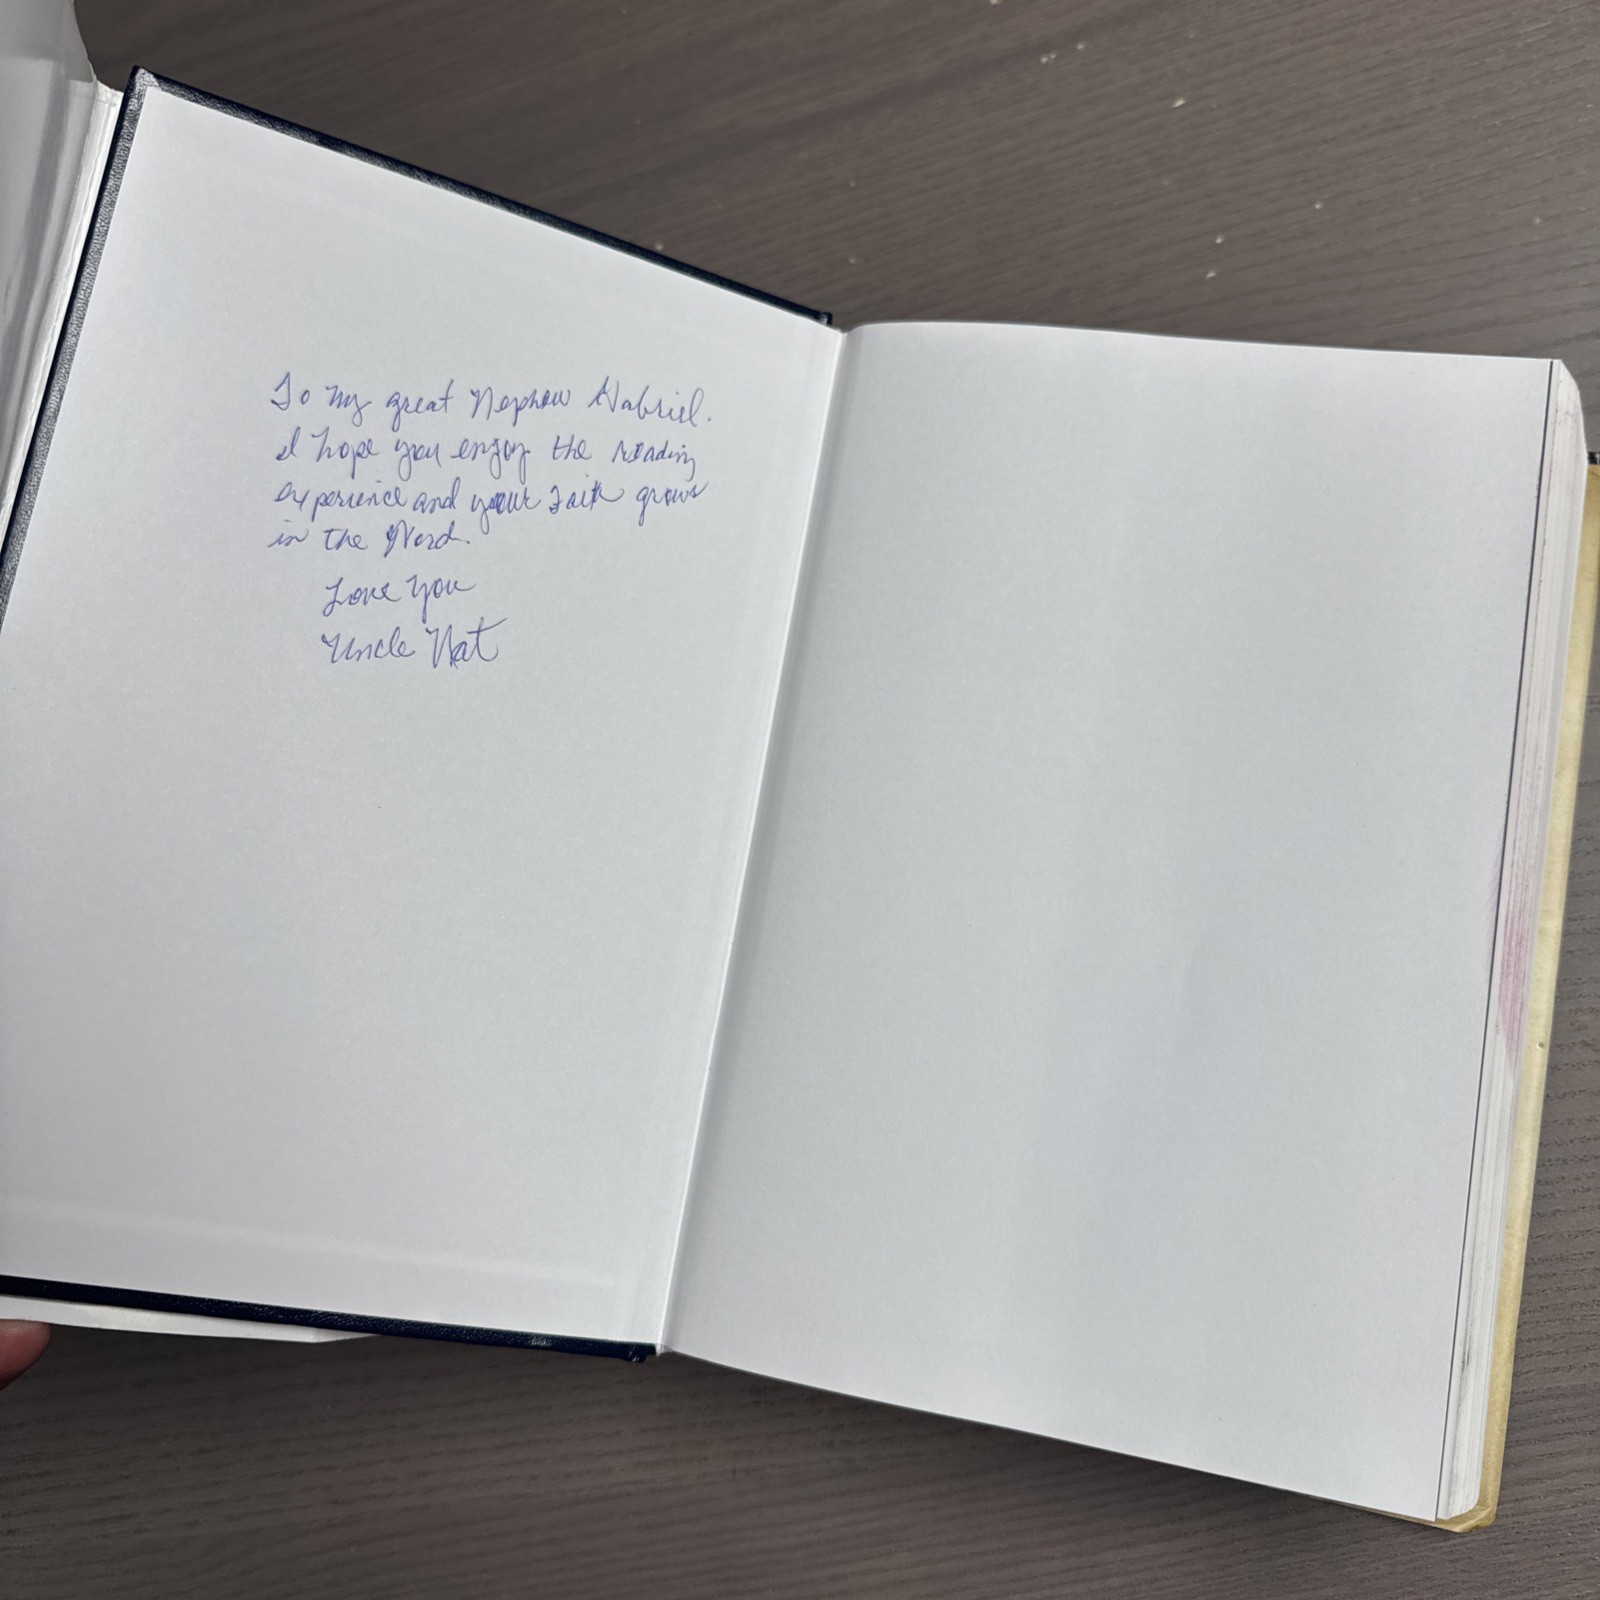 To my great Nephew Gabriel.
I hope you enjoy the reading
experience and your Faith grows
in the Word.
Love You
Uncle Nat